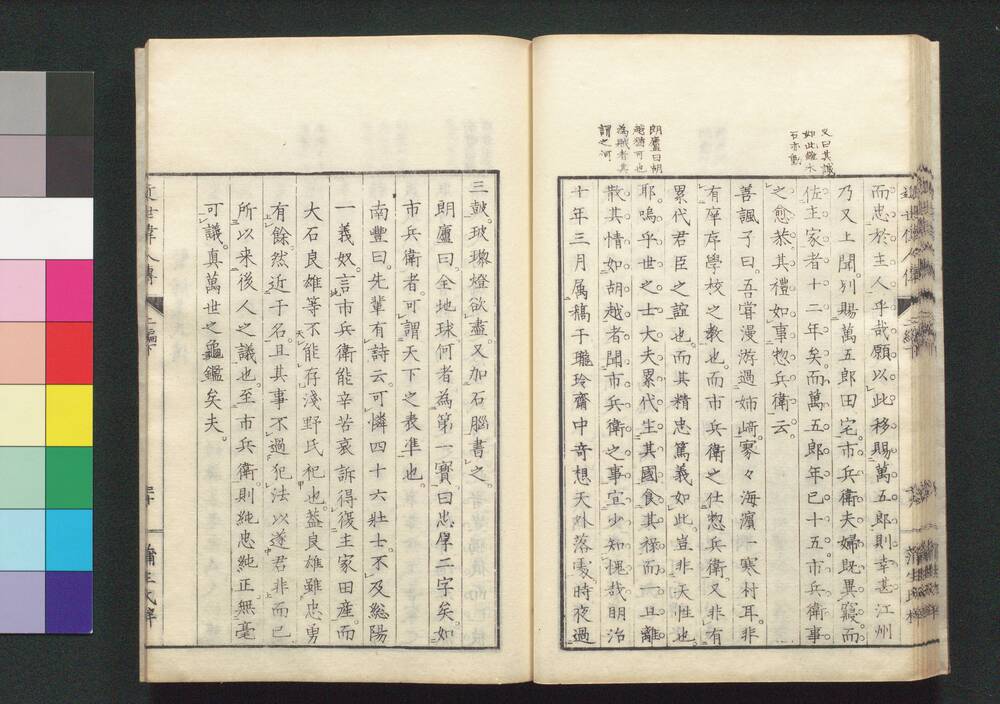 又曰其誠
如此雖木
石亦動
朗廬曰胡
越猶可也
為賊者其
謂之何
而忠於主人乎哉願以此移賜萬五郎則幸甚江州
乃又上聞別賜萬五郎田宅市兵衛夫婦既異竁而
佐主家者十二年矣而萬五郎年已十五市兵衛事
之愈恭其禮如事惣兵衛云
善諷子曰吾嘗漫游過姉﨑寥々海濱一寒村耳非
有庠序學校之教也而市兵衛之仕惣兵衛又非有
累代君臣之誼也而其精忠篤義如此豈非天性也
耶嗚乎世之士大夫累代生其國食其祿而一旦離
散其情如胡越者聞市兵衛之事宜少知愧哉明治
十年三月属稿于瓏玲齋中奇想天外落處時夜過
三鼓玻瓈燈欲盡又加石腦書之
朗廬曰全地球何者為第一寳曰忠厚二字矣如
市兵衛者可謂天下之表準也
南豐曰先輩有詩云可憐四十六壯士不及総陽
一義奴言市兵衛能辛苦哀訴得復主家田産而
大石良雄等不能存淺野氏祀也蓋良雄雖忠勇
有餘然近于名且其事不過犯法以遂君非而已
所以来後人之議也至市兵衛則純忠純正無毫
可議真萬世之龜鑑矣夫
近世偉人傳
二編下
蒲生氏梓